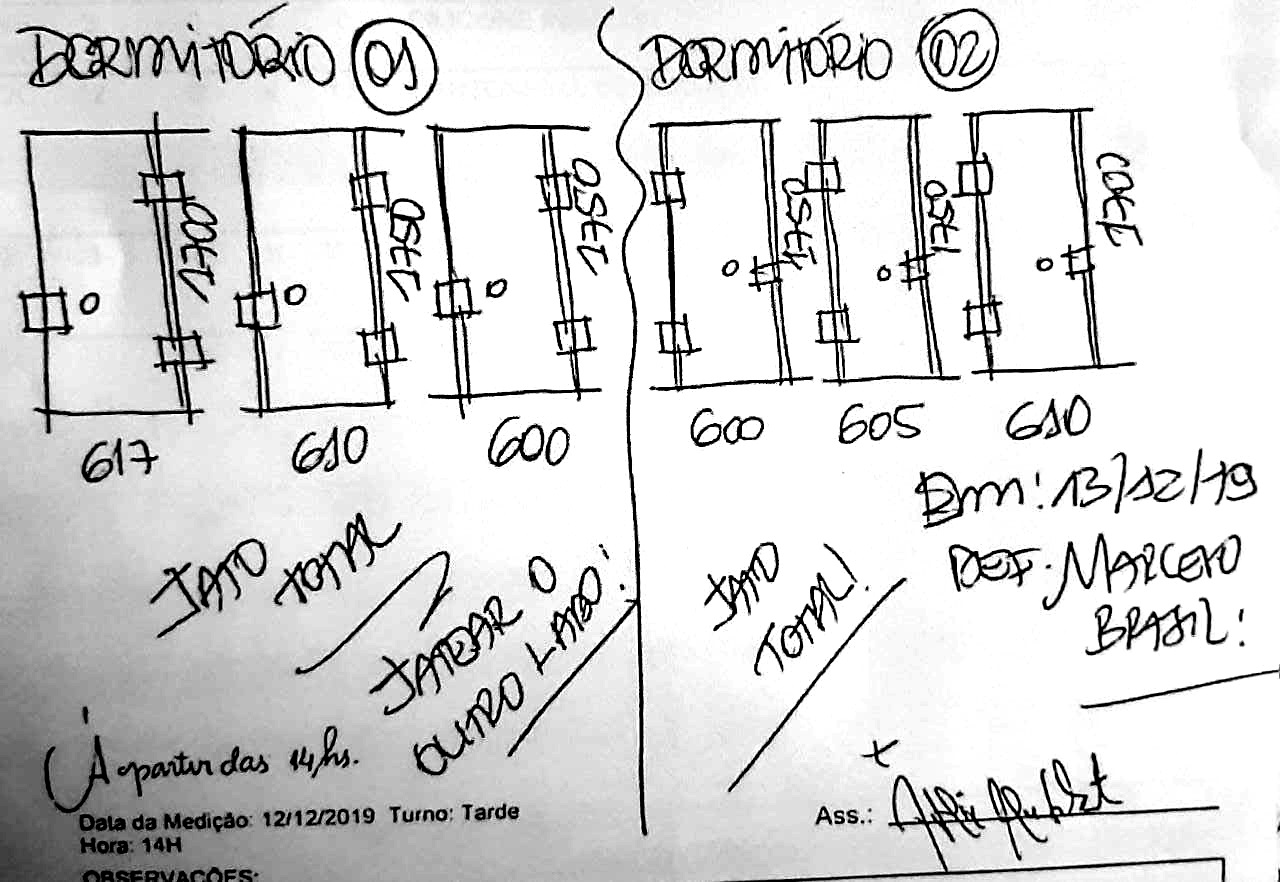 DORMITÓRIO 01
DORMITÓRIO 02
617
610
600
600
605
610
JATO TOTAL
JATEAR O
OUTRO LADO!
JATO
TOTAL!
Em: 13/12/19
DEF. MARCELO
BRASIL!
A partir das 14hs.
Data da Medição: 12/12/2019 Turno: Tarde
Hora: 14H
Ass.:
OBSERVAÇÕES: